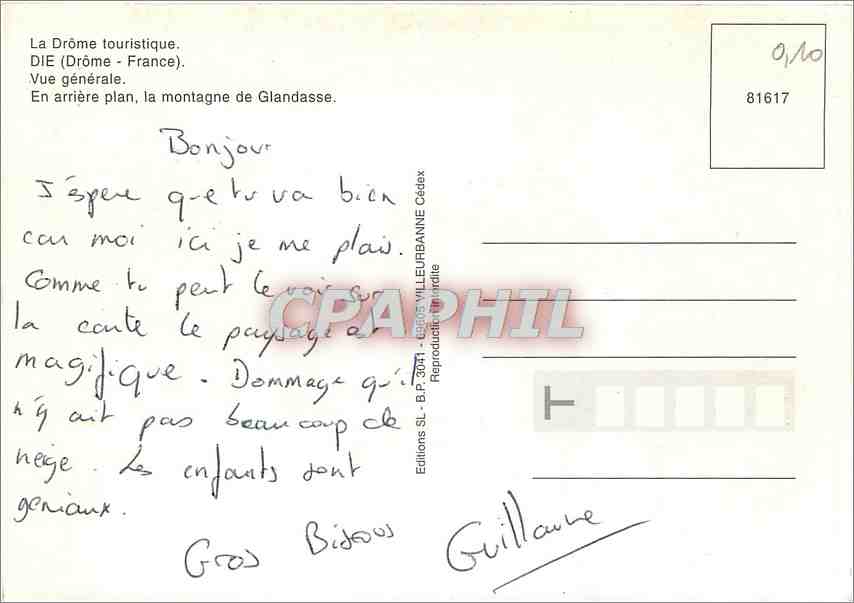 La Drôme touristique.
DIE (Drôme - France).
Vue générale.
En arrière plan, la montagne de Glandasse.
0,10
81617
Bonjour
J'éspere que tu va bien
car moi ici je me plais.
Comme tu peut le voir sur
la carte le paysage est
magifique. Dommage qu'il
n'y ait pas beaucoup de
neige. Les enfants sont
geniaux.
Gros Bisous
Guillaume
Editions SL - B.P. 3041 - 69605 VILLEURBANNE Cédex
Reproduction interdite
CPAPHIL
T